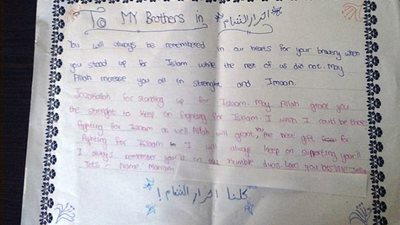 To MY Brothers In احرار الشام
You will always be remembered in our hearts for your bravery when
you stood up for Islam while the rest of us did not. May
Allah increase you all in strenght and Imaan.
Jazakallah for standing up for Islaam. May Allah grant you
the strenght to keep on fighting for Islam. I wish I could be there
fighting for Islaam as well Allah will grant you the best gift for
fighting for Islaam I will always keep on supporting you!!
I always remember you in my humble duas
كلنا احرار الشام!